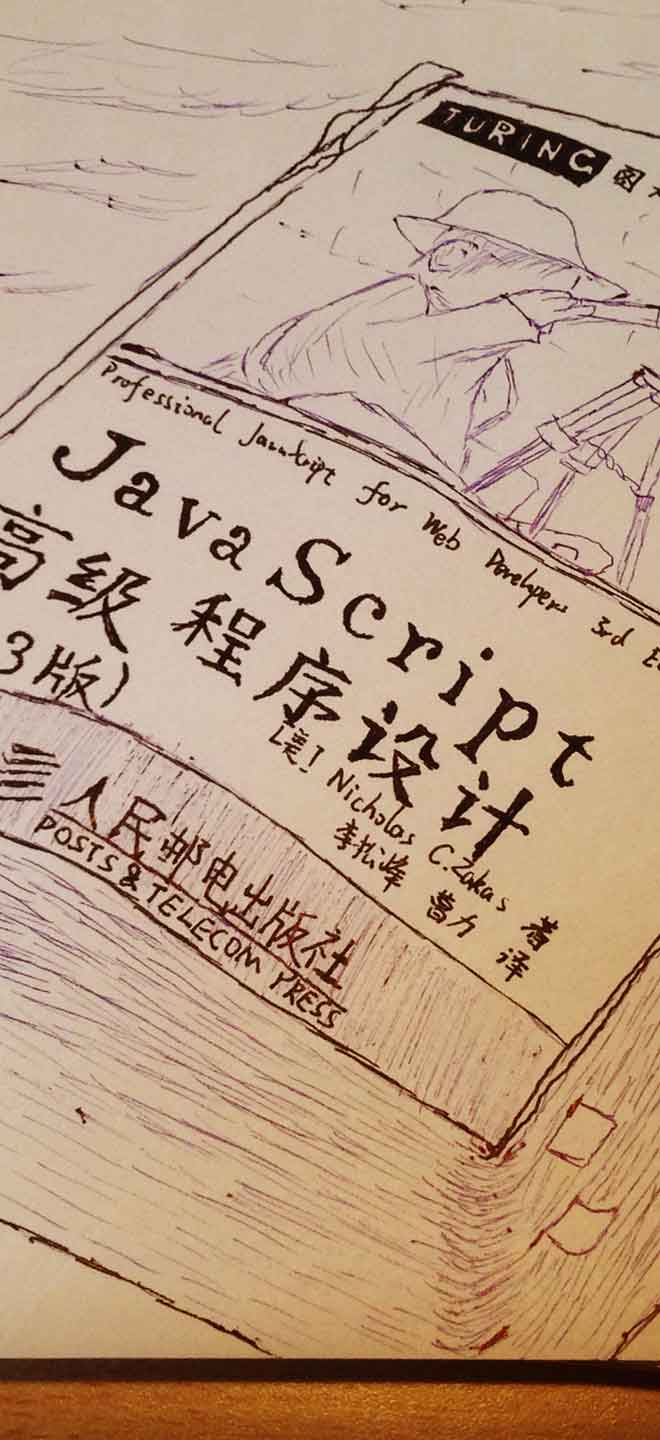 TURING 图
Professional JavaScript for Web Developers 3rd E
JavaScript
高级程序设计
3版)
[美] Nicholas C.Zakas 著
李松峰 曹力 译
人民邮电出版社
POSTS & TELECOM PRESS